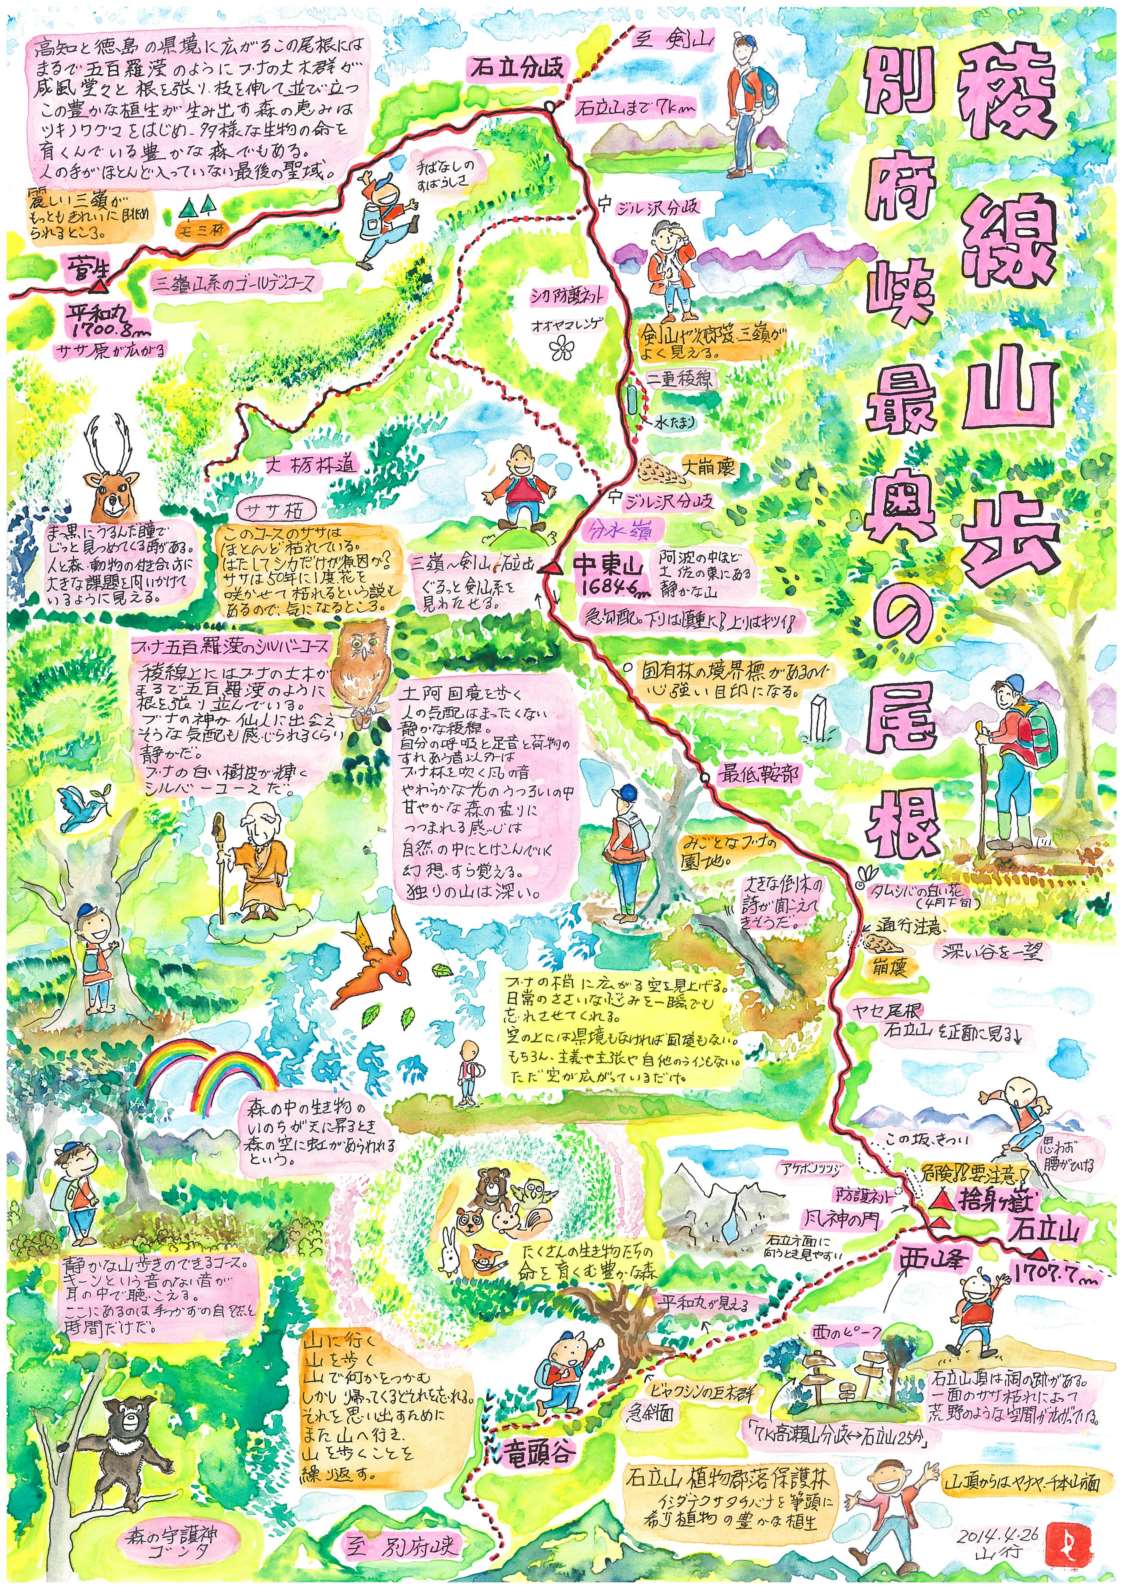 稜線山歩
別府峡最奥の尾根
高知と徳島の県境に広がるこの尾根には
まるで五百羅漢のようにブナの大木群が
威風堂々と根を張り、枝を伸して並び立つ
この豊かな植生が生み出す森の恵みは
ツキノワグマをはじめ、多様な生物の命を
育くんでいる豊かな森でもある。
人の手がほとんど入っていない最後の聖域。
石立分岐
至 剣山
石立山まで7km
手ばなしの
すばらしさ
麗しい三嶺が
もっともきれいに眺め
られるところ。
モミ林
菅生
三嶺山系のゴールデンコース
平和丸
1700.8m
ササ原が広がる
ジル沢分岐
シカ防護ネット
オオヤマレンゲ
剣山や次郎笈、三嶺が
よく見える。
二重稜線
水たまり
大崩壊
大栃林道
ジル沢分岐
分水嶺
中東山
1684.6m
阿波の中ほど
土佐の東にある
静かな山
三嶺〜剣山、石立山
ぐるっと剣山系を
見わたせる。
急勾配。下りは慎重に!上りはキツイ!
まっ黒にうるんだ瞳で
じっと見つめてくる時がある。
人と森・動物の付き合い方に
大きな課題を問いかけて
いるように見える。
ササ枯
このコースのササは
ほとんど枯れている。
はたしてシカだけが原因か?
ササは50年に1度花を
咲かせて枯れるという説も
あるので、気になるところ。
ブナ五百羅漢のシルバーコース
稜線上にはブナの大木が
まるで五百羅漢のように
根を張り並んでいる。
ブナの神か仙人に出会え
そうな気配も感じられるくらい
静かだ。
ブナの白い樹皮が輝く
シルバーコースだ。
土阿国境を歩く
人の気配はまったくない
静かな稜線。
自分の呼吸と足音と荷物の
すれあう音以外は
ブナ林を吹く風の音
やわらかな光のうつろいの中
甘やかな森の香りに
つつまれる感じは
自然の中にとけこんでいく
幻想すら覚える。
独りの山は深い。
国有林の境界標があるので
心強い目印になる。
最低鞍部
みごとなブナの
園地。
大きな倒木の
詩が聞こえて
きそうだ。
タムシバの白い花
(4月下旬)
通行注意
崩壊
深い谷を一望
ヤセ尾根
石立山を正面に見る
ブナの梢に広がる空を見上げる。
日常のささいな悩みを一瞬でも
忘れさせてくれる。
空の上には県境もなければ国境もない。
もちろん、主義や主張や自他のラインもない。
ただ空が広がっているだけ。
森の中の生き物の
いのちが天に昇るとき
森の空に虹があらわれる
という。
この坂、きつい
思わず
腰がひける
アケボノツツジ
危険!!要注意!
防護ネット
捨身ヶ嶽
風神の門
石立山
1707.7m
石立方面に
向うとき見やすい
西峰
たくさんの生き物たちの
命を育くむ豊かな森
平和丸が見える
静かな山歩きのできるコース。
キーンという音のない音が
耳の中で聴こえる。
ここにあるのは手つかずの自然と
時間だけだ。
山に行く
山を歩く
山で何かをつかむ
しかし帰ってくるとそれを忘れる。
それを思い出すために
また山へ行き、
山を歩くことを
繰り返す。
西のピーク
ビャクシンの巨木群
急斜面
「7K高瀬山分岐↔石立山25分」
石立山頂は祠の跡がある。
一面のササ枯れによって
荒野のような空間が広がっている。
竜頭谷
石立山植物群落保護林
イシダテクサタチバナを筆頭に
希少植物の豊かな植生
山頂からはヤオヤ、千本山方面
森の守護神
ゴンタ
至 別府峡
2014.4.26
山行